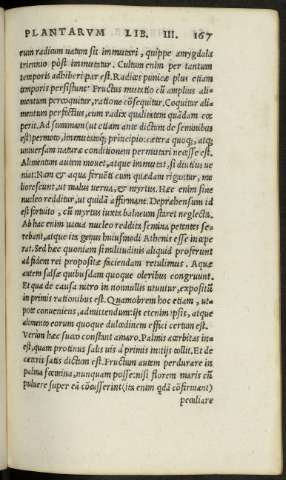 PLANTARVM LIB. III. 167
rum radicum natura sit immutari, quippe amygdala
triennio pòst immutetur. Cultum enim per tantum
temporis adhiberi par est. Radices punicæ plus etiam
temporis persistunt. Fructus mutatio cũ amplius ali-
mentum percoquitur, ratione cõsequitur. Coquitur ali-
mentum perfectius, cum radix qualitatem quãdam cœ
perit. Ad summam (ut etiam ante dictum de seminibus
est) permoto, immutatoq́; principio: cætera quoq;, atq;
uniuersam naturæ conditionem permutari necesse est.
Alimentum autem mouet, atque immutat, si diutius ue
niat: Nam & aqua feruẽti cum quædam rigantur, me
liorescunt, ut malus uerna, & myrtus. Hæc enim sine
nucleo redditur, ut quidã affirmant. Deprehensum id
est fortuito, cũ myrtus iuxta balneum staret neglecta.
Ab hac enim uacua nucleo reddita semina petentes se-
rebant, atque ita genus huiusmodi Athenis esse incœpe
rat. Sed hæc quoniam similitudinis aliquid proferunt
ad fidem rei propositæ faciendam retulimus. Aquæ
autem salsæ quibusdam quoque oleribus congruunt.
Et qua de causa nitro in nonnullis utuntur, expositũ
in primis rationibus est. Quamobrem hoc etiam, ut-
pote conueniens, admittendum: ijs etenim ipsis, atque
alimento eorum quoque dulcedinem effici certum est.
Verùm hæc suauo constant amaro. Palmis acerbitas in-
est, quam protinus salis uis à primis initijs tollit. Et de
cæteris satis dictum est. Fructum autem perdurare in
palma fœmina, nunquam posse: nisi florem maris cũ
puluere super eã cõcusserint (ita enim qdã cõfirmant)
peculiare